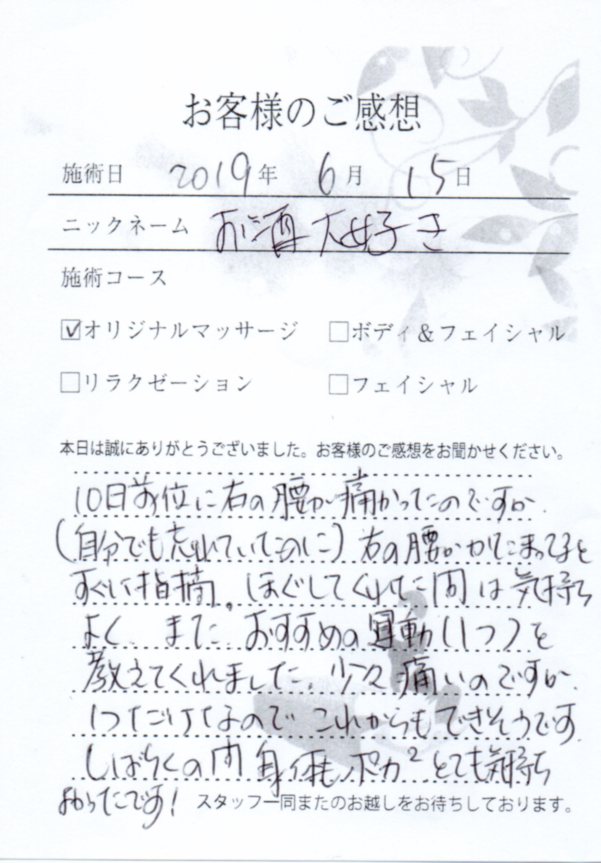 お客様のご感想
施術日 2019年 6月 15日
ニックネーム お酒大好き
施術コース
☑オリジナルマッサージ □ボディ&フェイシャル
□リラクゼーション □フェイシャル
本日は誠にありがとうございました。お客様のご感想をお聞かせください。
10日前位に右の腰が痛かったのですが、
(自分でも忘れていたのに)右の腰がかたまってると
すぐに指摘。ほぐしてくれた間は気持ち
よく、また、おすすめの運動(1つ)を
教えてくれました。少々痛いのですが、
1つだけなので これからもできそうです
しばらくの間 身体もポカ²とても気持ち
よかったです! スタッフ一同またのお越しをお待ちしております。